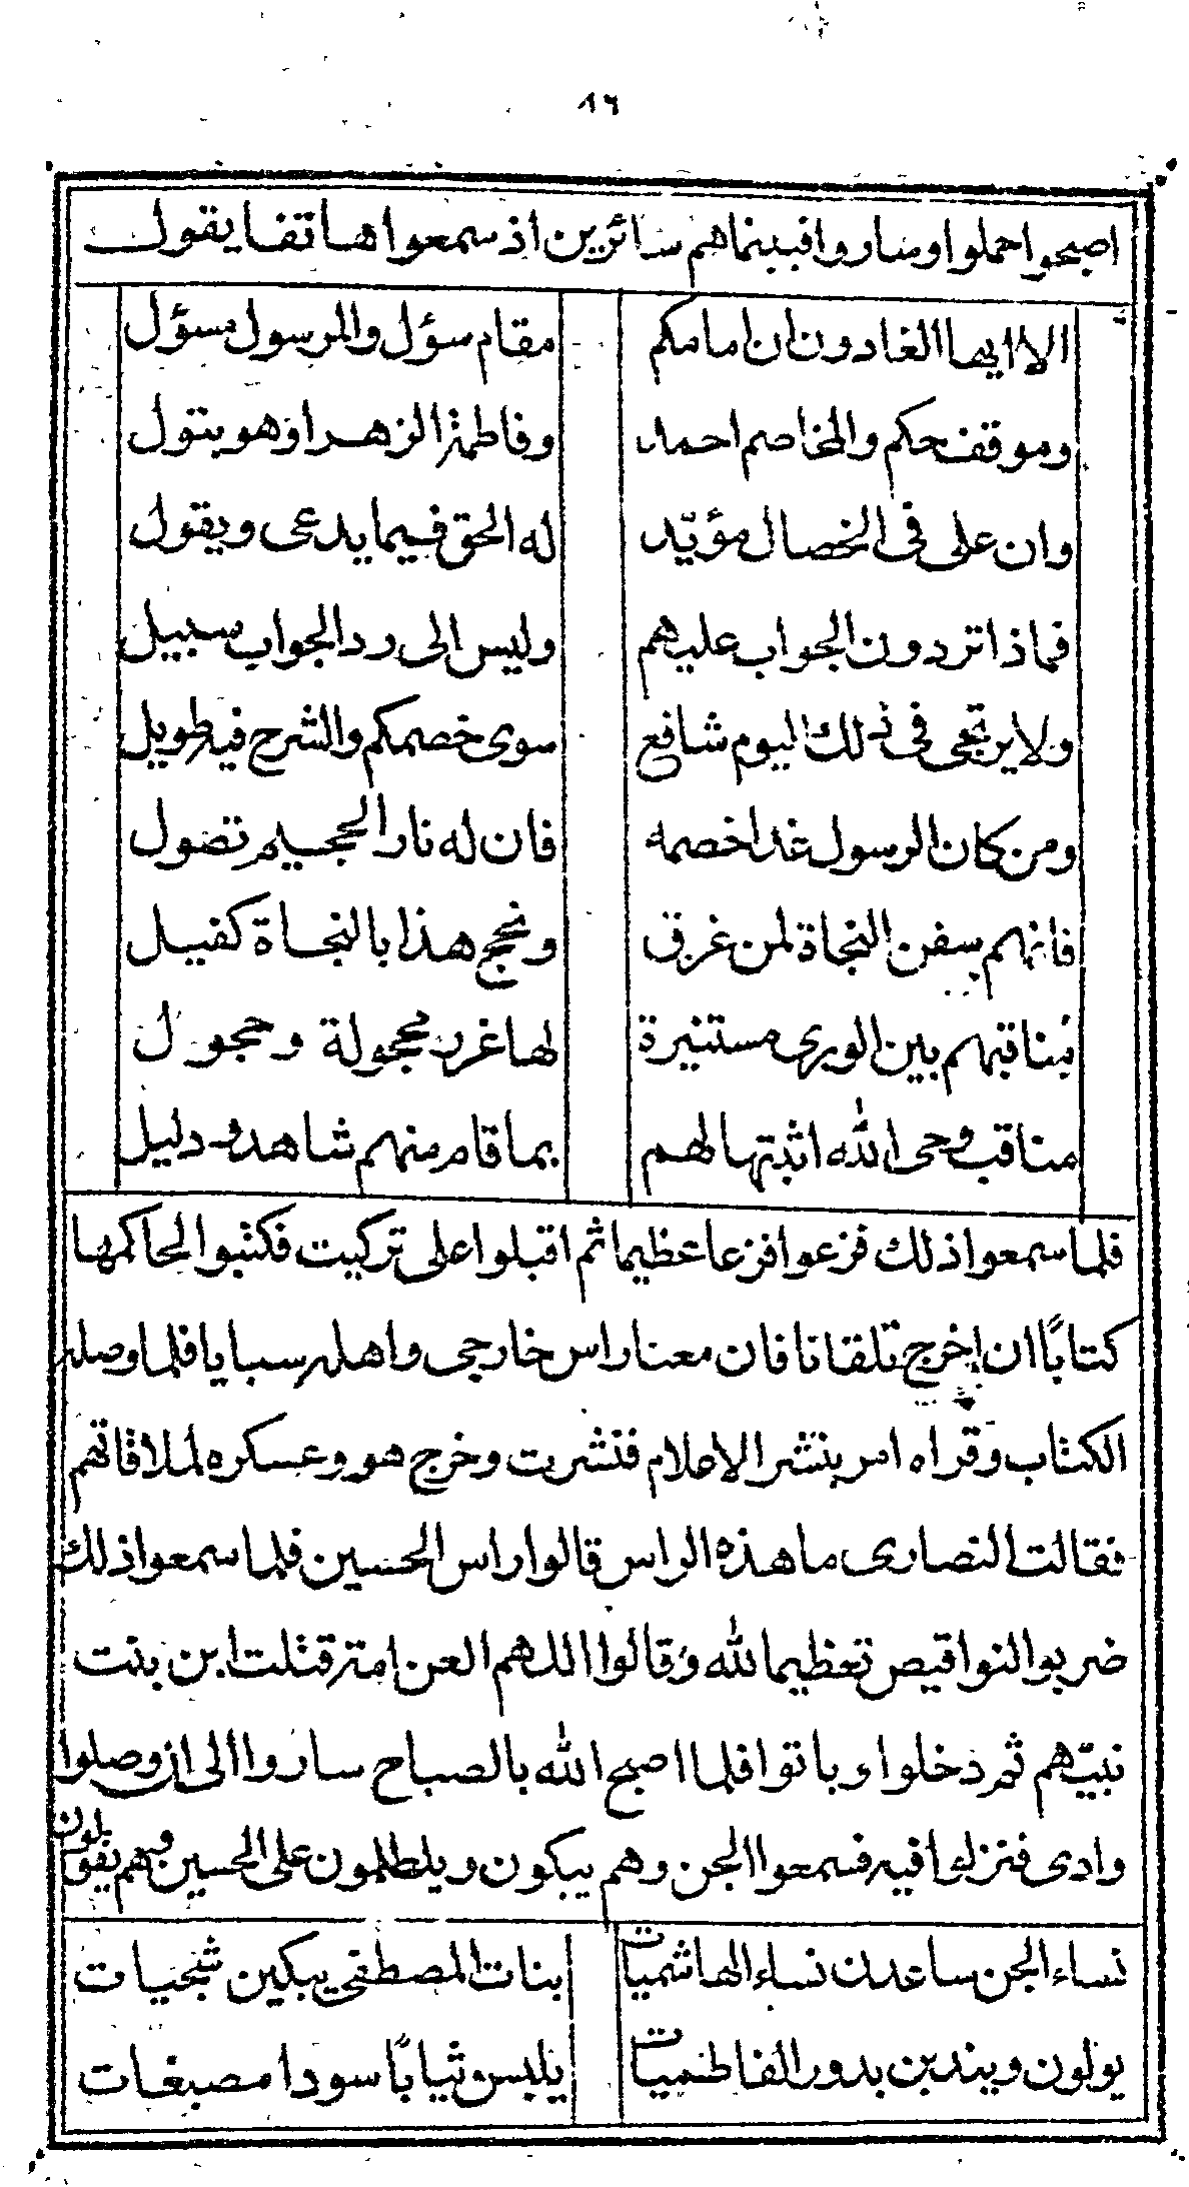 ١٦
اصبحوا حملوا وساروا فبينماهم سائرين اذ سمعوا هاتفا يقول
الا ايها الغادون ان امامكم مقام سؤل والرسول مسؤل
وموقف حكم والخاصم احمد وفاطمة الزهراء وهو بتول
وان على فى الخصال مؤيّد له الحق فيما يدعى ويقول
فماذا تردون الجواب عليهم وليس الى رد الجواب سبيل
ولا يرتجى فى ذلك اليوم شافع سوى خصمكم والشرح فيه طويل
ومن كان الرسول غدا خصمه فان له نار الجحيم تصول
فانهم سفن النجاة لمن غرق ونجح هذا بالنجاة كفيل
مناقبهم بين الورى مستنيرة لها غرر مجحولة وحجول
مناقب وحى الله اثبتها لهم بما قام منهم شاهد ودليل
فلما سمعوا ذلك فزعوا فزعا عظيما ثم اقبلوا على تركيت فكتبوا الحاكمها
كتابًا ان اخرج تلقانا فان معنا راس خارجى واهله سبايا فلما وصله
الكتاب وقراه امر بنشر الاعلام فنشرت وخرج هو وعسكره لملاقاتهم
فقالت النصارى ما هذه الراس قالوا راس الحسين فلما سمعوا ذلك
ضربوا النواقيص تعظيما لله وقالوا اللهم العن امة قتلت ابن بنت
نبيّهم ثم دخلوا وباتوا فلما اصبح الله بالصباح ساروا الى ان وصلوا
وادى فنزلوا فيه فسمعوا الجن وهم يبكون ويلطمون على الحسين وهم يقولون
نساء الجن ساعدن نساء الهاشميات بنات المصطفى يبكين شجيات
يولون ويندبن بدور الفاطميات يلبسن ثيابًا سودا مصبغات